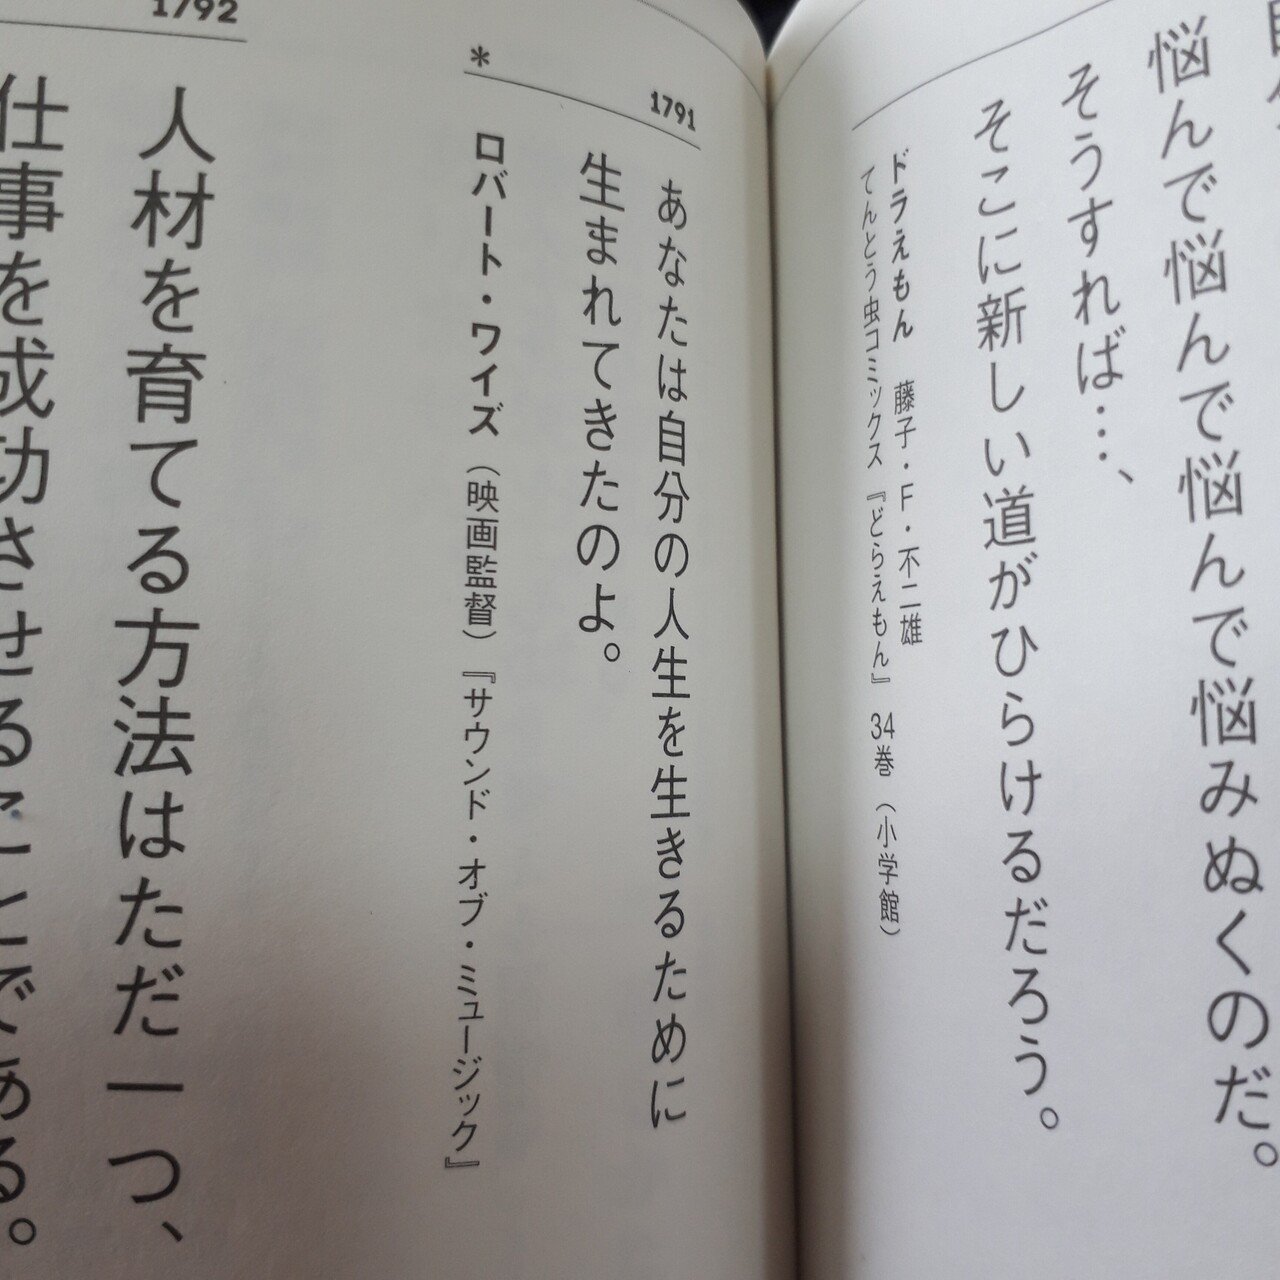 悩んで悩んで悩んで悩みぬくのだ。
そうすれば…、
そこに新しい道がひらけるだろう。
ドラえもん 藤子・F・不二雄
てんとう虫コミックス『どらえもん』 34巻 (小学館)
1791
あなたは自分の人生を生きるために
生まれてきたのよ。
*
ロバート・ワイズ (映画監督) 『サウンド・オブ・ミュージック』
1792
人材を育てる方法はただ一つ、
仕事を成功させることである。